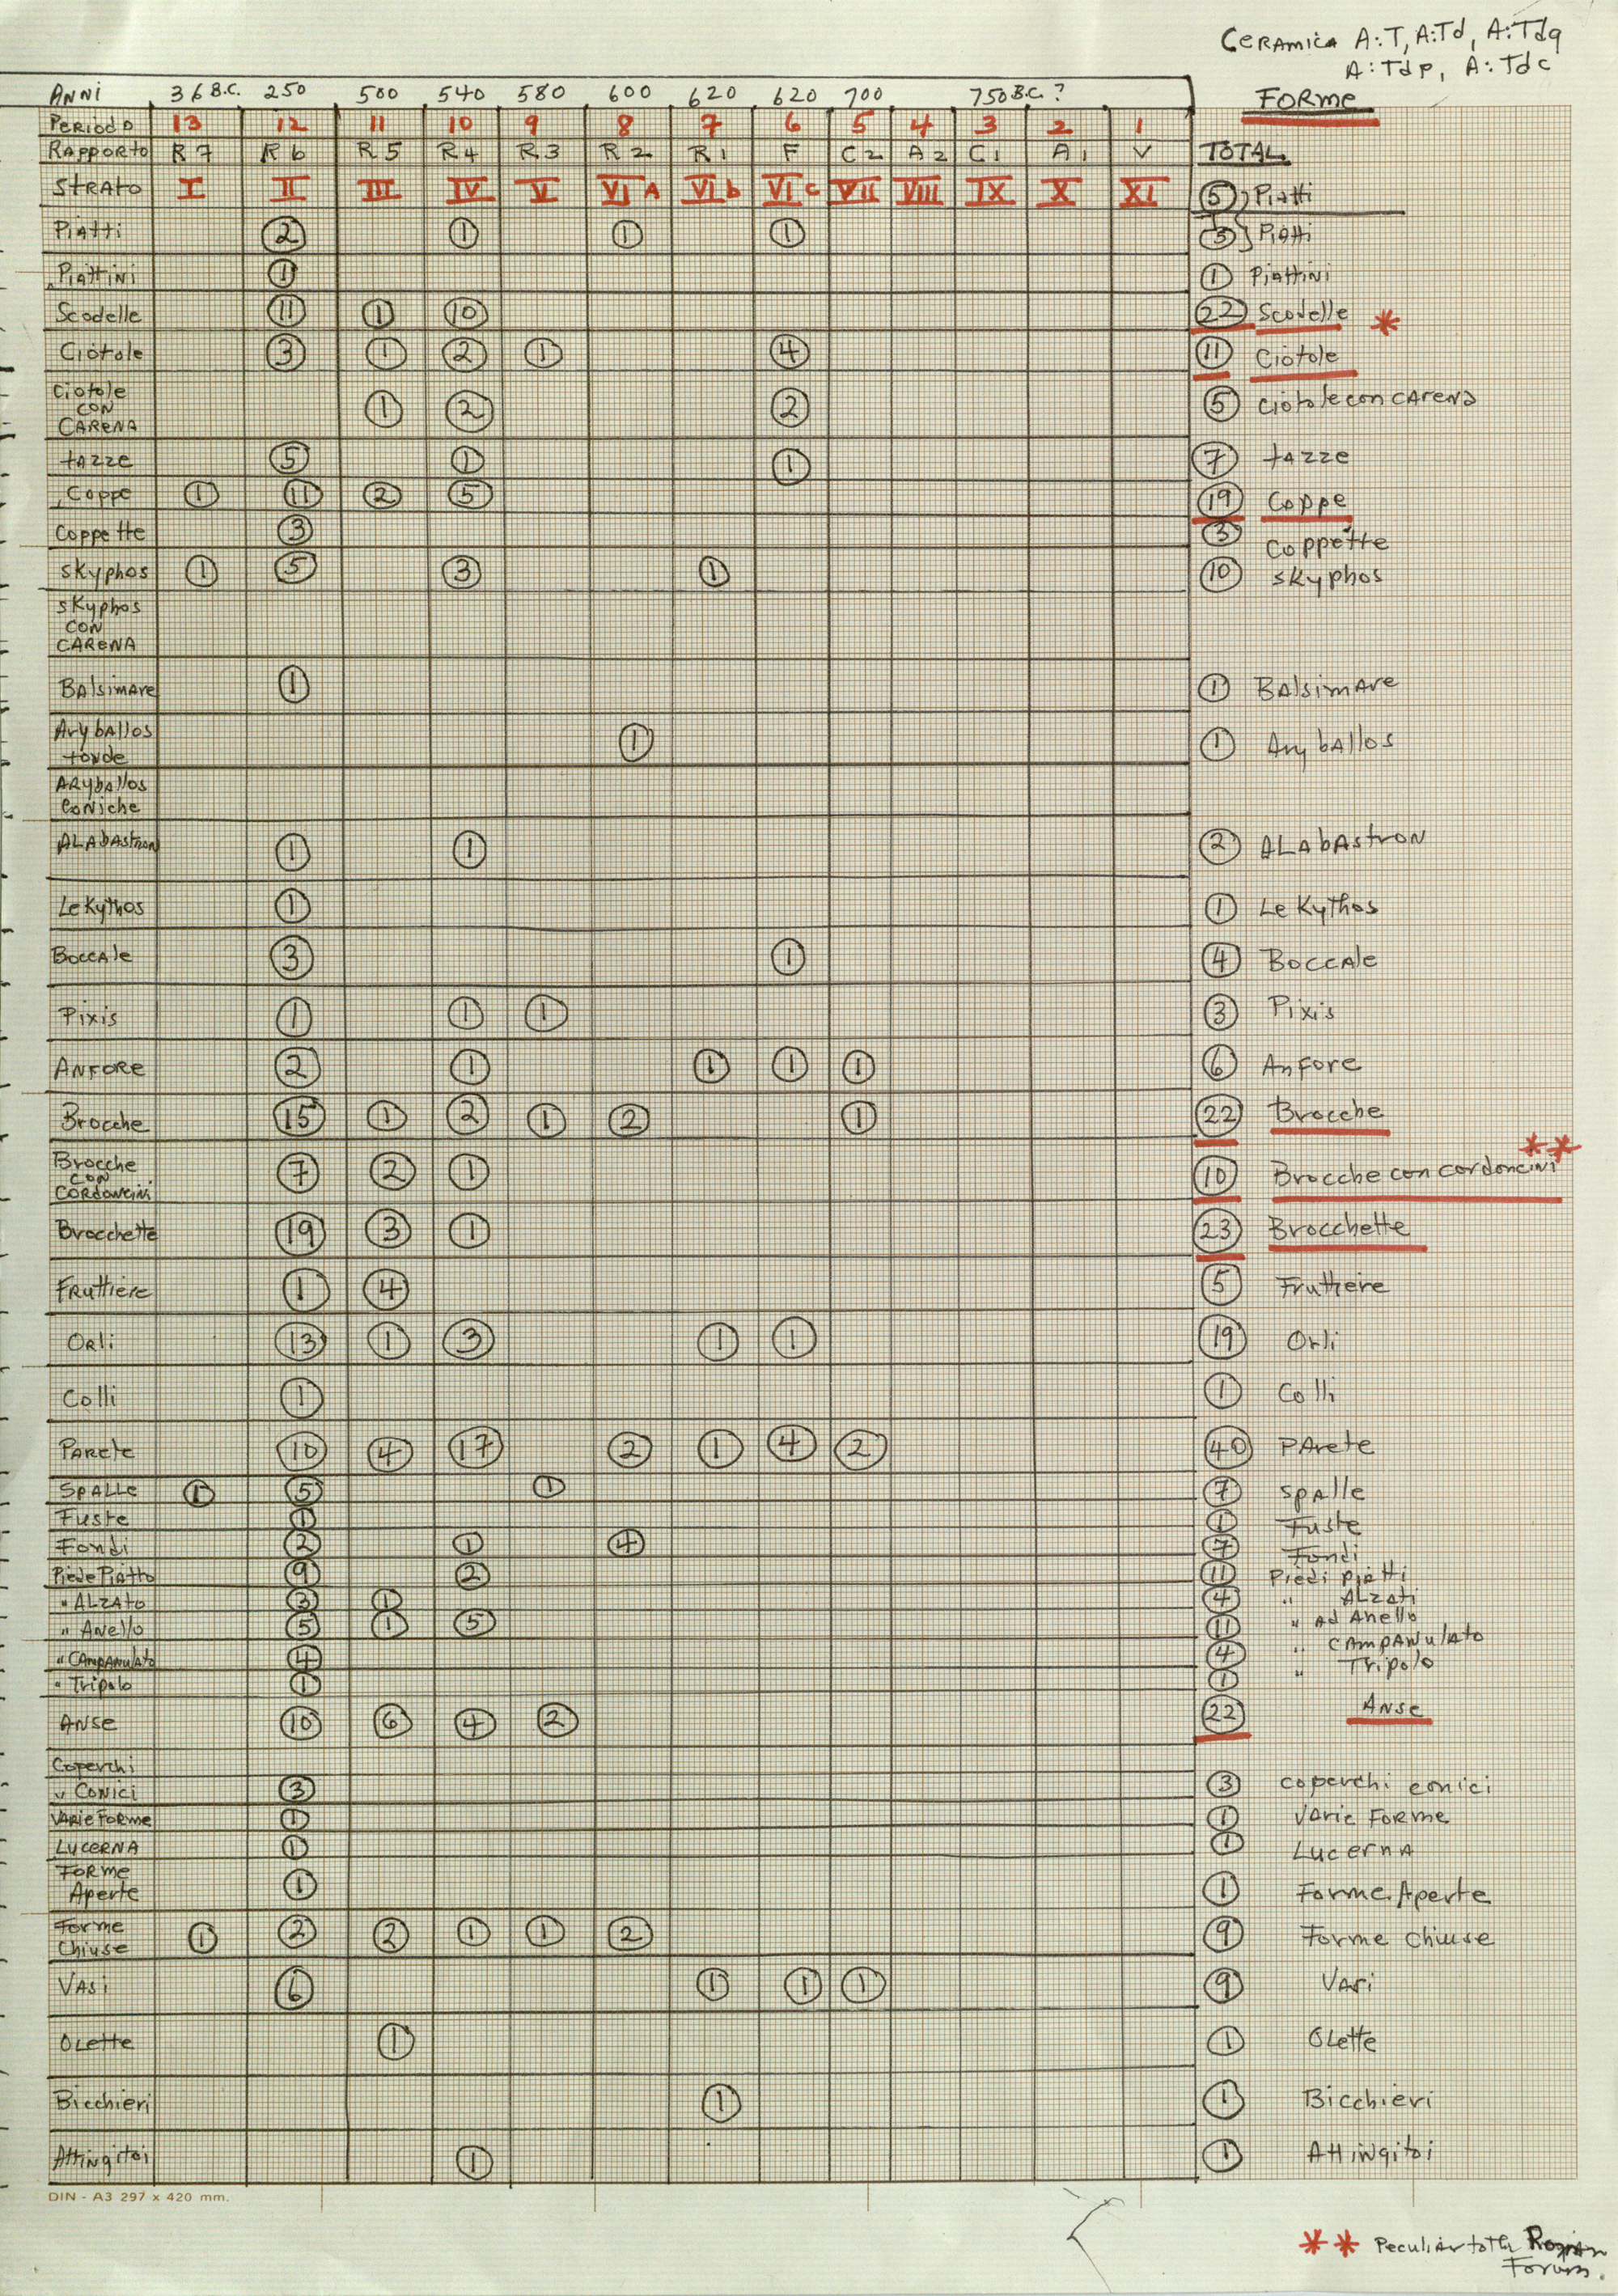 Ceramica A:T, A:Td, A:Tdq
A:Tdp, A:Tdc
Anni 36 B.C. 250 500 540 580 600 620 620 700 750 B.C. ? FORME
Periodo 13 12 11 10 9 8 7 6 5 4 3 2 1
Rapporto R7 R6 R5 R4 R3 R2 R1 F C2 A2 C1 A1 V TOTAL
Strato I II III IV V VI A VI b VI c VII VIII IX X XI 5 Piatti
Piatti 2 1 1 1 3 Piatti
Piattini 1 1 Piattini
Scodelle 11 1 10 22 Scodelle *
Ciotole 3 1 2 1 4 11 Ciotole
Ciotole
con
carena 1 2 2 5 Ciotole con carena
tazze 5 1 1 7 tazze
Coppe 1 11 2 5 19 Coppe
Coppette 3 3 Coppette
skyphos 1 5 3 1 10 skyphos
skyphos
con
carena
Balsimare 1 1 Balsimare
Aryballos
tonde 1 1 Aryballos
Aryballos
coniche
Alabastron 1 1 2 Alabastron
Lekythos 1 1 Lekythos
Boccale 3 1 4 Boccale
Pixis 1 1 1 3 Pixis
Anfore 2 1 1 1 1 6 Anfore
Brocche 15 1 2 1 2 1 22 Brocche
Brocche
con
cordoncini 7 2 1 10 Brocche con cordoncini **
Brocchette 19 3 1 23 Brocchette
Fruttiere 1 4 5 Fruttiere
Orli 13 1 3 1 1 19 Orli
Colli 1 1 Colli
Parete 10 4 17 2 1 4 2 40 Parete
Spalle 1 5 1 7 Spalle
Fuste 1 1 Fuste
Fondi 2 1 4 7 Fondi
Piede Piatto 9 2 11 Piedi piatti
" Alzato 3 1 4 " Alzati
" Anello 5 1 5 11 " ad Anello
" Campanulato 4 4 " Campanulato
" Tripolo 1 1 " Tripolo
Anse 10 6 4 2 22 Anse
Coperchi
" Conici 3 3 coperchi conici
Varie Forme 1 1 Varie Forme
Lucerna 1 1 Lucerna
Forme
Aperte 1 1 Forme Aperte
Forme
Chiuse 1 2 2 1 1 2 9 Forme Chiuse
Vasi 6 1 1 1 9 Vasi
Olette 1 1 Olette
Bicchieri 1 1 Bicchieri
Attingitoi 1 1 Attingitoi
DIN - A3 297 x 420 mm.
** Peculiar to the Roman
Forum.